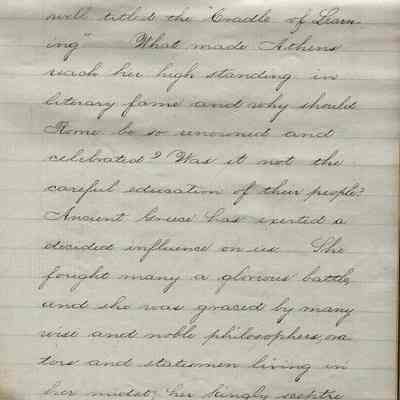 well titled the "Cradle of Learn-
ing" What made Athens
reach her high standing in
literary fame and why should
Rome be so renowned and
celebrated? Was it not the
careful education of their people?
Ancient Greece has exerted a
decided influence on us She
fought many a glorious battle,
and she was graced by many
wise and noble philosophers, ora
tors and statesmen living in
her midst; her kingly sceptre